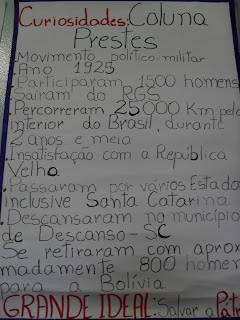 Curiosidades: Coluna
Prestes
Movimento político-militar
.Ano 1925
.Participaram 1500 homens
.Saíram do RGS
.Percorreram 25000 Km pelo
interior do Brasil, durante
2 anos e meio
.Insatisfação com a República
Velha
.Passaram por vários Estado
inclusive Santa Catarina
.Descansaram no município
de Descanso-SC
Se retiraram com aprox
madamente 800 homen
para a Bolívia
GRANDE IDEAL: Salvar a Pátr